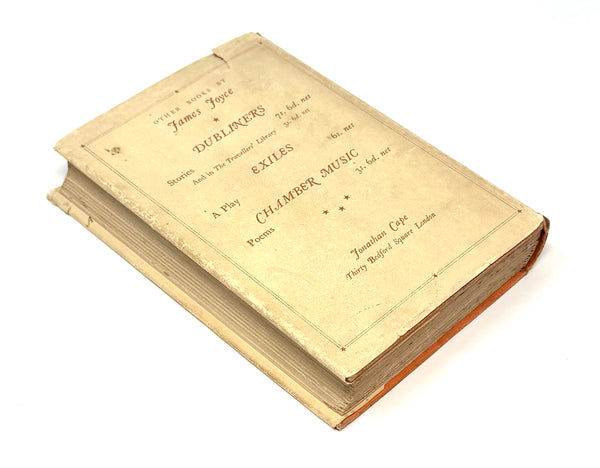 OTHER BOOKS BY
James Joyce
DUBLINERS
Stories 7s. 6d. net
And in The Travellers' Library 3s. 6d. net
EXILES
A Play 6s. net
CHAMBER MUSIC
Poems 3s. 6d. net
Jonathan Cape
Thirty Bedford Square London